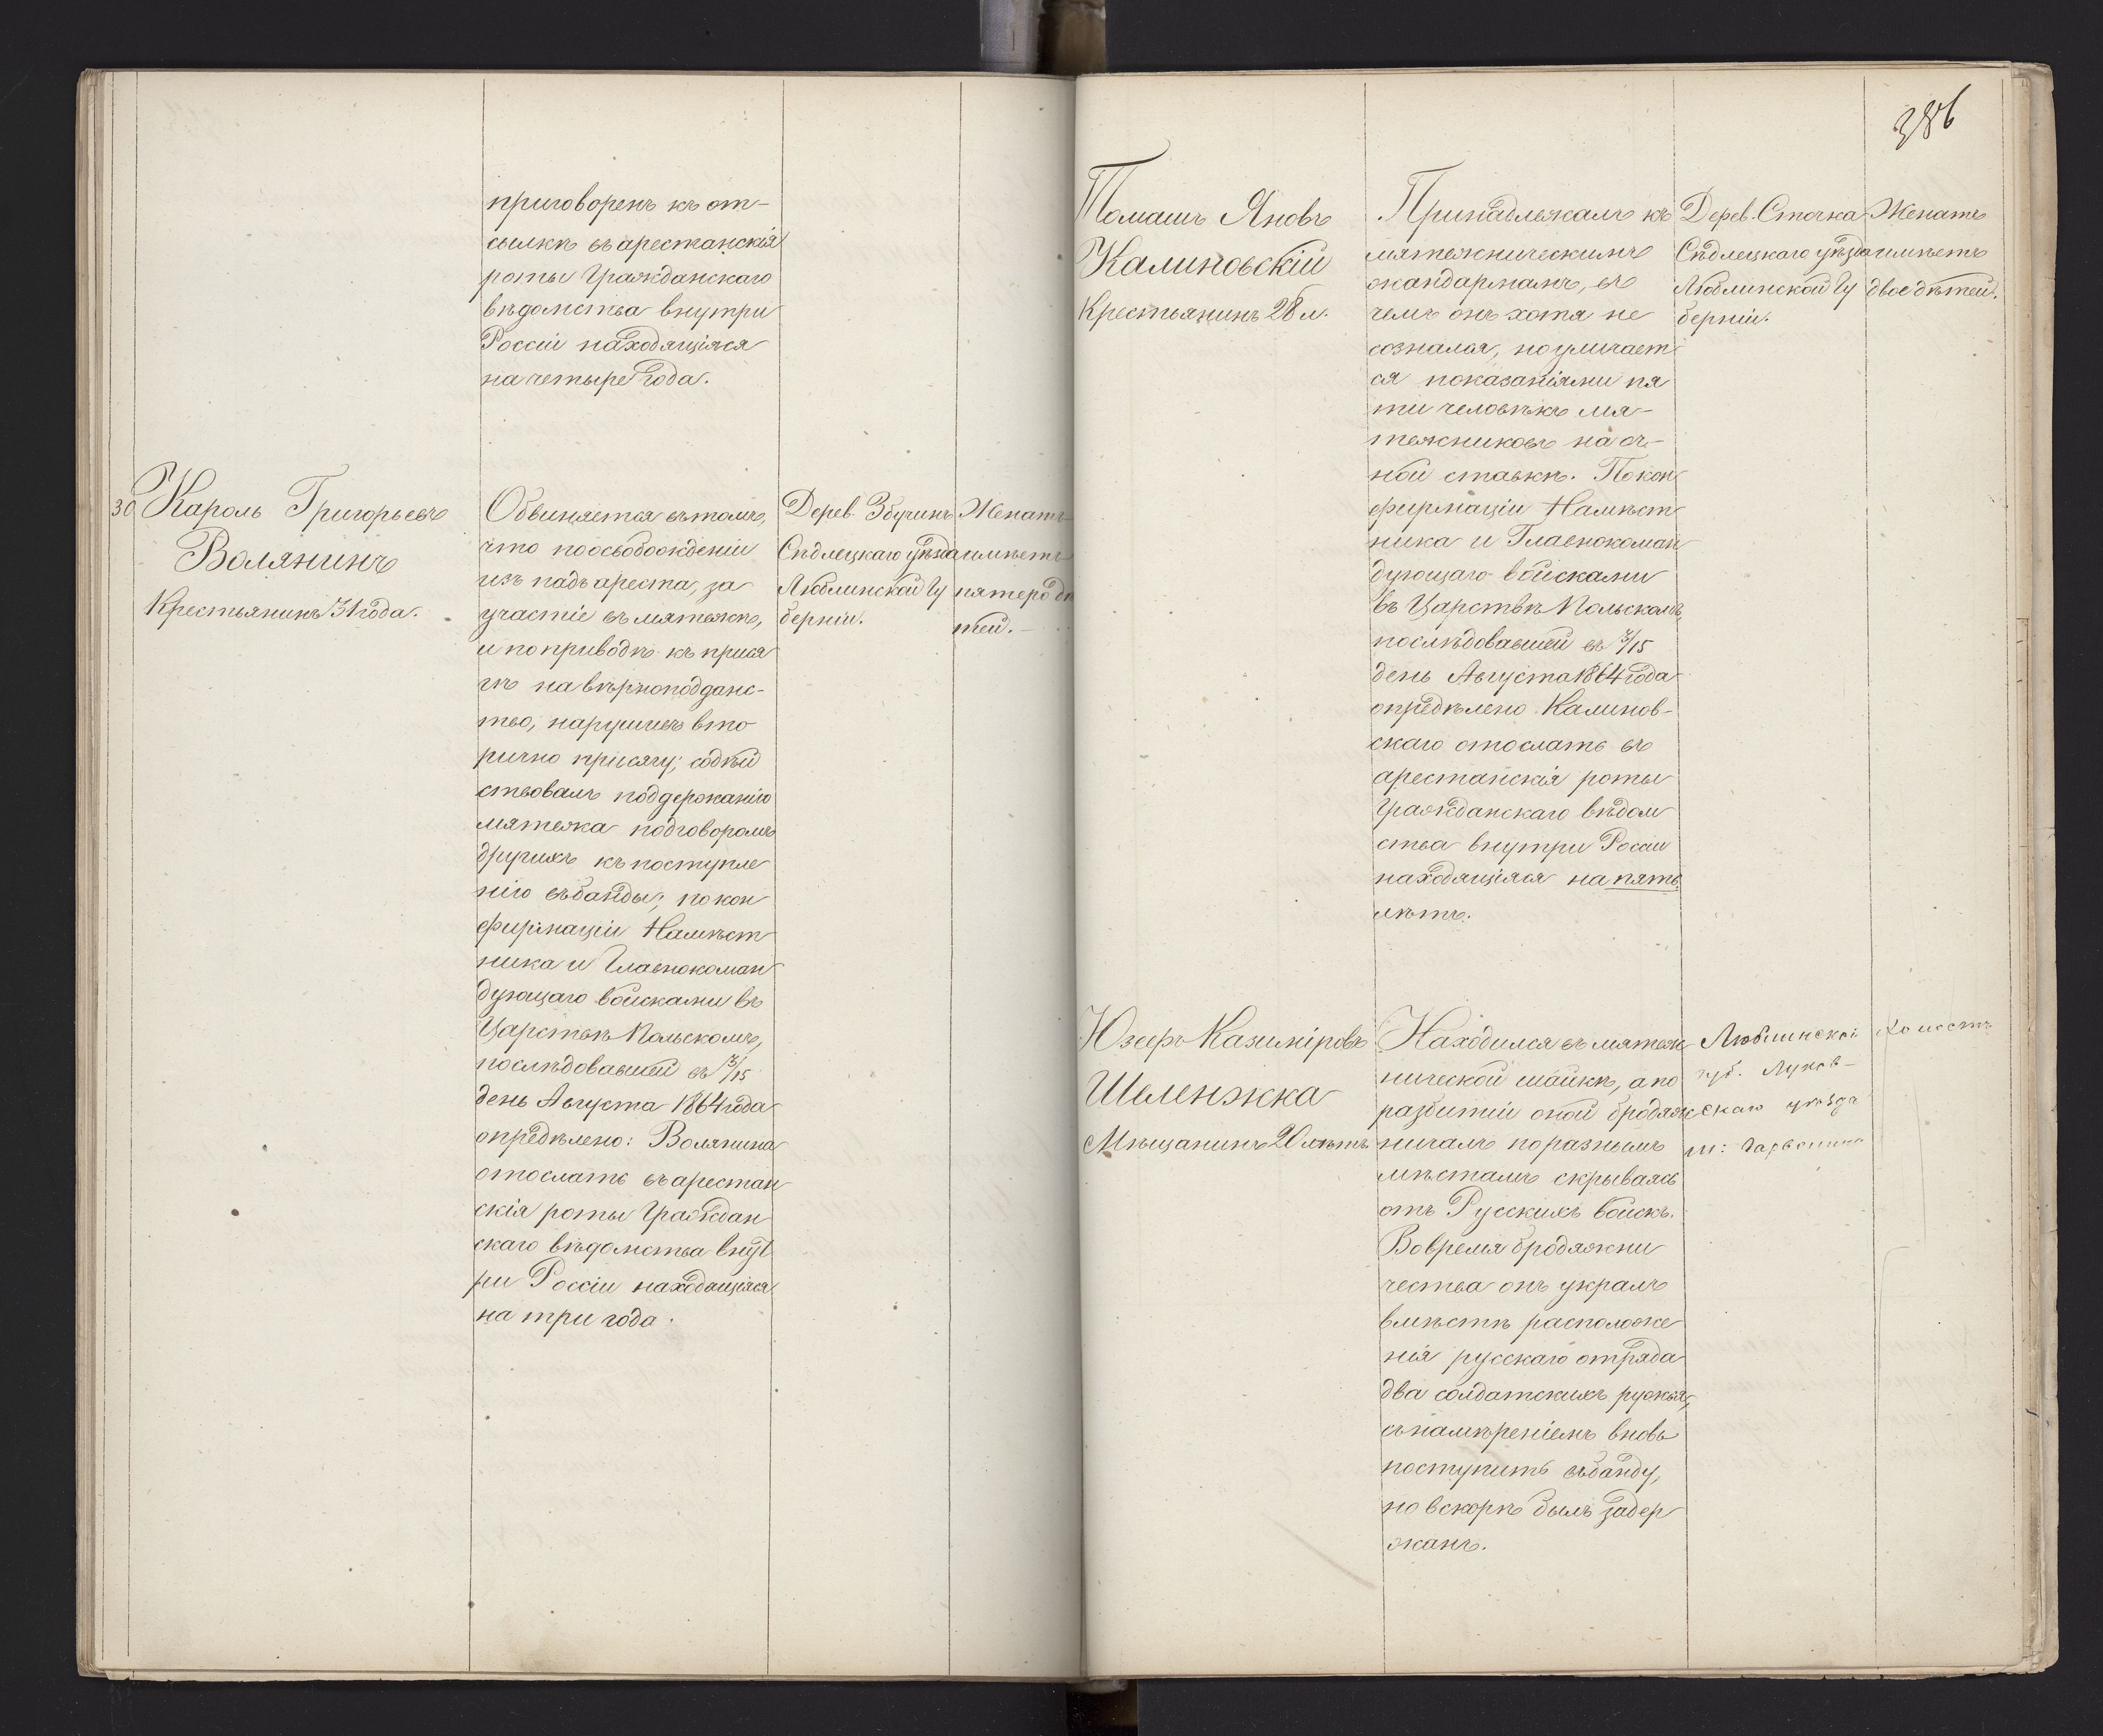 приговоренъ къ от-
сылкѣ въ арестанскія
роты Гражданскаго
вѣдомства внутри
Россіи находящіяся
на четыре года.
30 Кароль Григорьевъ
Волянинъ
Крестьянинъ 31 года.
Обвиняется въ томъ,
что по освобожденіи
изъ падъ ареста, за
участіе въ мятежѣ,
и по приводѣ къ прися
гѣ на вѣрноподданс-
тво, нарушивъ вто
рично присягу; содѣй
ствовалъ поддержанію
мятежа подговоромъ
другихъ къ поступле
нію въ банды; по кон
фирмаціи Намѣст
ника и Главнокоман
дующаго войсками въ
Царствѣ Польскомъ,
послѣдовавшей въ 3/15
день Августа 1864 года
опредѣлено: Волянина
отослать въ арестан
скія роты Граждан
скаго вѣдомства внут
ри Россіи находящіяся
на три года.
Дерев. Збучинъ
Сѣдлецкаго уѣзда
Люблинской Гу
берніи.
Женатъ
имѣетъ
пятеро дѣ
тей.
386
Томашъ Яновъ
Калиновскій
Крестьянинъ 28 л.
Принадлежалъ къ
мятежническимъ
жандармамъ, въ
чемъ онъ хотя не
сознался, но уличает
ся показаніями пя
ти человѣкъ мя-
тежниковъ на оч-
ной ставкѣ. По кон
фирмаціи Намѣст
ника и Главнокоман
дующаго войсками
въ Царствѣ Польскомъ,
послѣдовавшей въ 3/15
день Августа 1864 года
опредѣлено Калинов-
скаго отослать въ
арестанскія роты
Гражданскаго вѣдом
ства внутри Россіи
находящіяся на пять
лѣтъ.
Дерев. Сточка
Сѣдлецкаго уѣзда
Люблинской Гу
берніи.
Женатъ
имѣетъ
двое дѣтей.
Юзефъ Казиміровъ
Шеленжка
Мѣщанинъ 20 лѣтъ
Находился въ мятеж
нической шайкѣ, а по
разбитіи оной бродяж
ничалъ по разнымъ
мѣстамъ скрываясь
отъ Русскихъ войскъ.
Во время бродяжни
чества онъ укралъ
вмѣстѣ расположе
нія русскаго отряда
два солдатскихъ ружья,
съ намѣреніемъ вновь
поступить въ банду,
но вскорѣ былъ задер
жанъ.
Люблинской
губ. Луков-
скаго уѣзда
м:
Холостъ